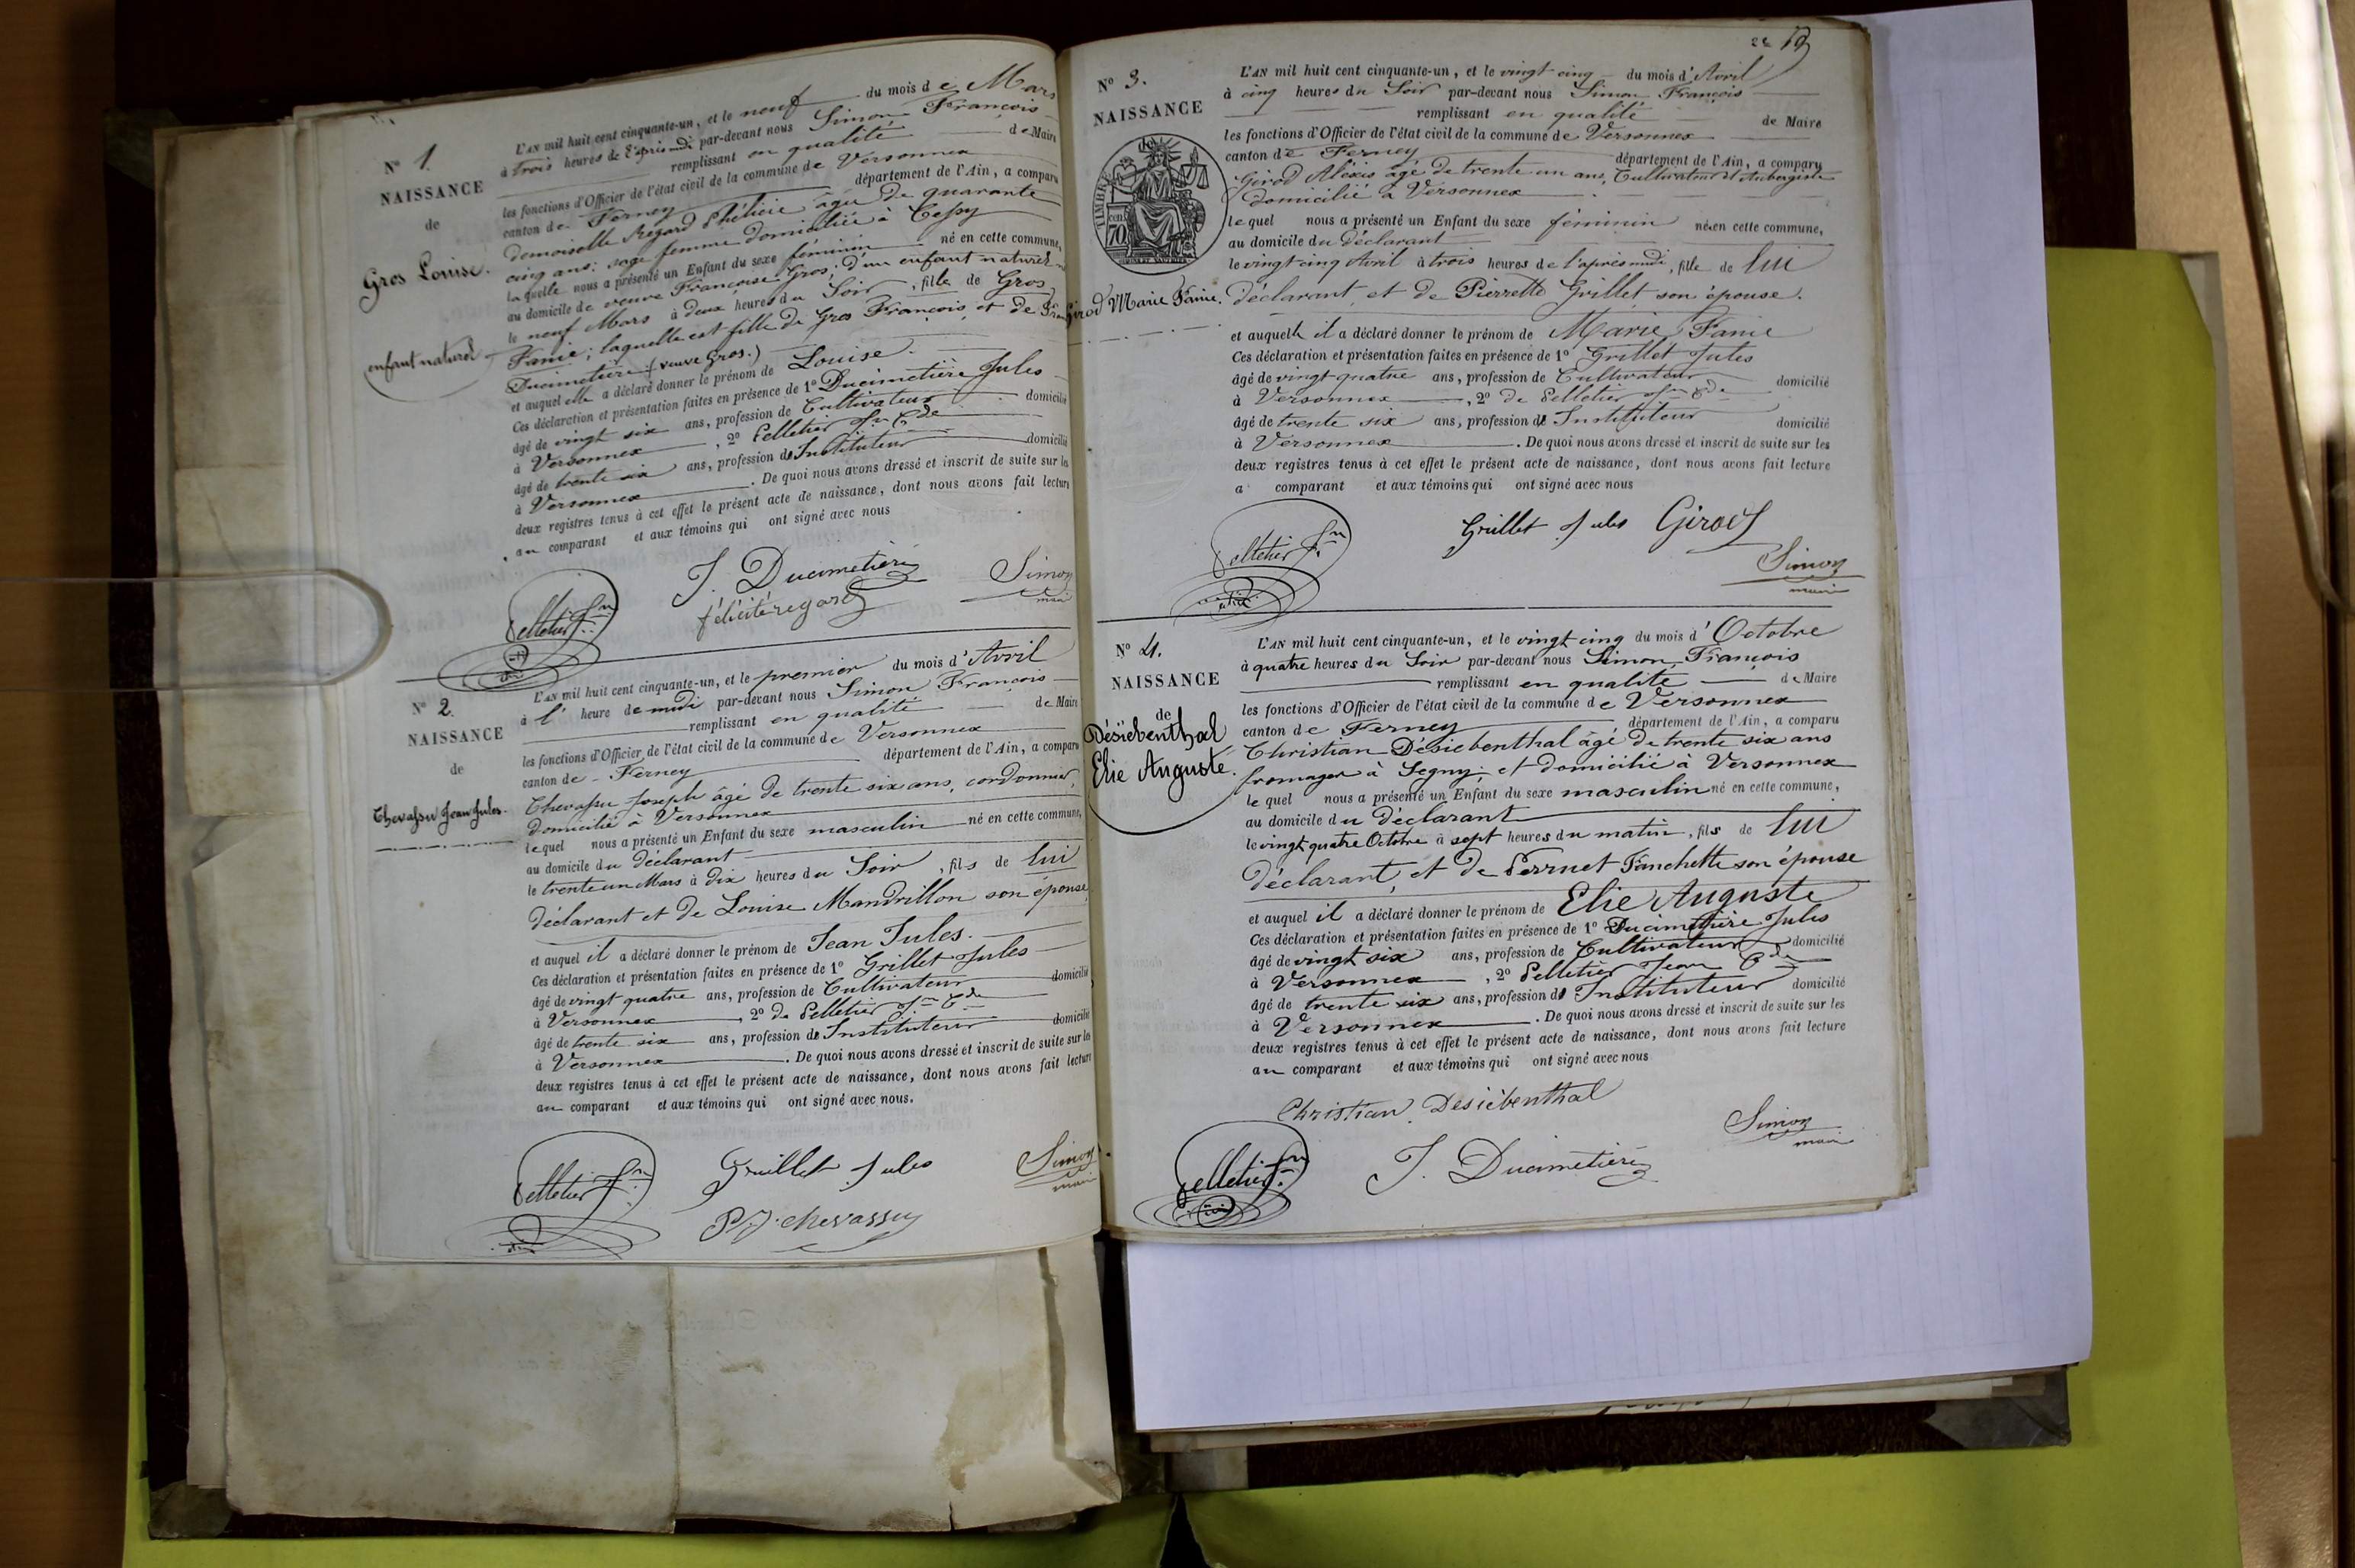 N° 1.
NAISSANCE
de
Gros Louise.
enfant naturel
L'AN mil huit cent cinquante-un, et le neuf du mois de Mars
à trois heures de l'après midi par-devant nous Simon François
remplissant en qualité de Maire
les fonctions d'Officier de l'état civil de la commune de Versonnex
canton de Ferney département de l'Ain, a comparu
demoiselle Regard Phélicie âgée de quarante
cinq ans; sage femme domiciliée à Cessy
laquelle nous a présenté un Enfant du sexe féminin né en cette commune,
au domicile de veuve Françoise Gros; d'un enfant naturel
le neuf Mars à deux heures du Soir, fille de Gros
Fanie; laquelle est fille de Gros François, et de
Ducimetière (veuve Gros.)
et auquel elle a déclaré donner le prénom de Louise.
Ces déclaration et présentation faites en présence de 1° Ducimetière Jules
âgé de vingt six ans, profession de Cultivateur domicilié
à Versonnex, 2° Pelletier Jn Cde
âgé de trente six ans, profession d'Instituteur domicilié
à Versonnex. De quoi nous avons dressé et inscrit de suite sur les
deux registres tenus à cet effet le présent acte de naissance, dont nous avons fait lecture
au comparant et aux témoins qui ont signé avec nous
J. Ducimetière
Simon
maire
félicité regard
Pelletier Jn
N° 2.
NAISSANCE
de
Chevassu Jean Jules.
L'AN mil huit cent cinquante-un, et le premier du mois d'Avril
à l' heure de midi par-devant nous Simon François
remplissant en qualité de Maire
les fonctions d'Officier de l'état civil de la commune de Versonnex
canton de Ferney département de l'Ain, a comparu
Chevassu Joseph âgé de trente six ans, cordonnier,
domicilié à Versonnex
lequel nous a présenté un Enfant du sexe masculin né en cette commune,
au domicile du déclarant
le trente un Mars à dix heures du Soir, fils de lui
déclarant et de Louise Mandrillon son épouse,
et auquel il a déclaré donner le prénom de Jean Jules.
Ces déclaration et présentation faites en présence de 1° Grillet Jules
âgé de vingt quatre ans, profession de Cultivateur domicilié
à Versonnex, 2° de Pelletier Jn Cde
âgé de trente six ans, profession d'Instituteur domicilié
à Versonnex. De quoi nous avons dressé et inscrit de suite sur les
deux registres tenus à cet effet le présent acte de naissance, dont nous avons fait lecture
au comparant et aux témoins qui ont signé avec nous.
Pelletier Jn
Grillet Jules
Simon
maire
P. J. chevassu
N° 3.
NAISSANCE
TIMBRE
cen
70
Girod Marie Fanie.
L'AN mil huit cent cinquante-un, et le vingt cinq du mois d'Avril
à cinq heures du Soir par-devant nous Simon François
remplissant en qualité de Maire
les fonctions d'Officier de l'état civil de la commune de Versonnex
canton de Ferney département de l'Ain, a comparu
Girod Aléxis âgé de trente un ans, Cultivateur et Aubergiste
domicilié à Versonnex
lequel nous a présenté un Enfant du sexe féminin né en cette commune,
au domicile du déclarant
le vingt cinq Avril à trois heures de l'après midi, fille de lui
déclarant, et de Pierrette Grillet son épouse.
et auquelle il a déclaré donner le prénom de Marie Fanie
Ces déclaration et présentation faites en présence de 1° Grillet Jules
âgé de vingt quatre ans, profession de Cultivateur domicilié
à Versonnex, 2° de Pelletier Jn Cde
âgé de trente six ans, profession d'Instituteur domicilié
à Versonnex. De quoi nous avons dressé et inscrit de suite sur les
deux registres tenus à cet effet le présent acte de naissance, dont nous avons fait lecture
a comparant et aux témoins qui ont signé avec nous
Pelletier Jn
Grillet Jules Girod
Simon
maire
N° 4.
NAISSANCE
de
Désiébenthal
Elie Auguste.
L'AN mil huit cent cinquante-un, et le vingt cinq du mois d'Octobre
à quatre heures du Soir par-devant nous Simon François
remplissant en qualité de Maire
les fonctions d'Officier de l'état civil de la commune de Versonnex
canton de Ferney département de l'Ain, a comparu
Christian Désiebenthal âgé de trente six ans
fromager à Segny; et domicilié à Versonnex
lequel nous a présenté un Enfant du sexe masculin né en cette commune,
au domicile du déclarant
le vingt quatre Octobre à sept heures du matin, fils de lui
déclarant, et de Perruet Fanchette son épouse
et auquel il a déclaré donner le prénom de Elie Auguste
Ces déclaration et présentation faites en présence de 1° Ducimetière Jules
âgé de vingt six ans, profession de Cultivateur domicilié
à Versonnex, 2° Pelletier Jean Cde
âgé de trente six ans, profession d'Instituteur domicilié
à Versonnex. De quoi nous avons dressé et inscrit de suite sur les
deux registres tenus à cet effet le présent acte de naissance, dont nous avons fait lecture
au comparant et aux témoins qui ont signé avec nous
Christian Desiébenthal
Simon
maire
Pelletier Jn
J. Ducimetière